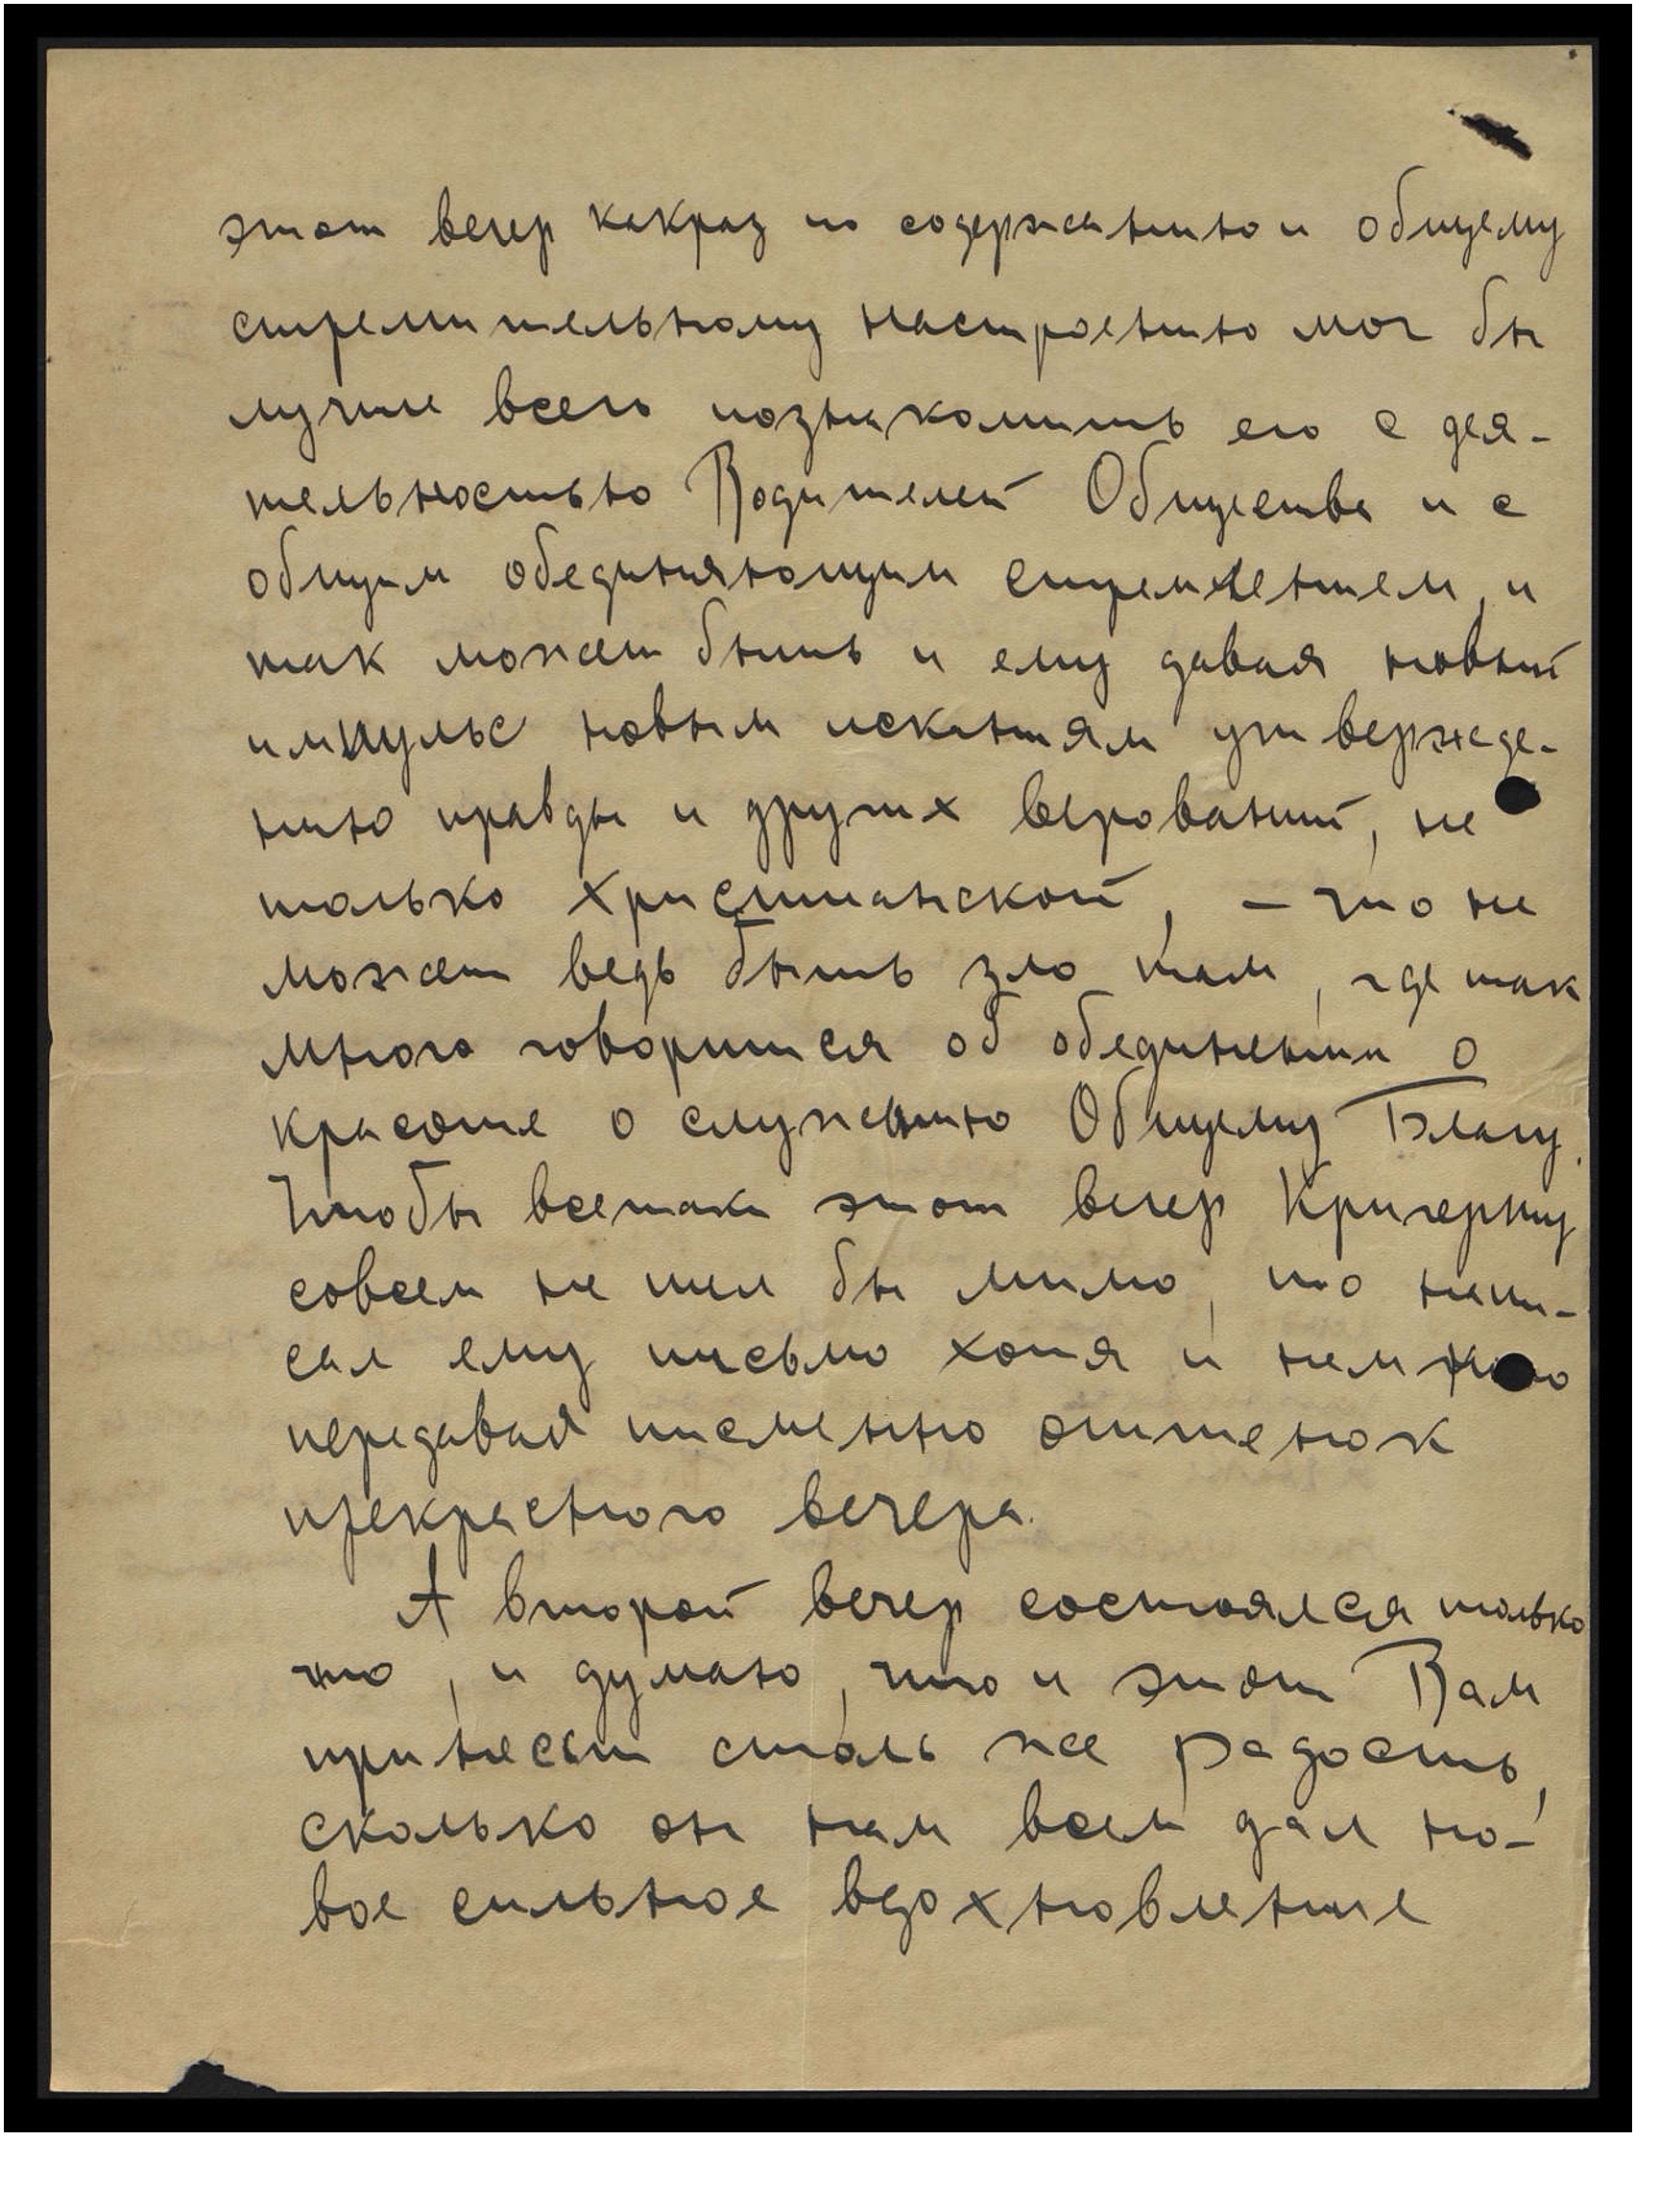 этот вечер какраз по содержанию и общему
стремительному настроению мог бы
лучше всего познакомить его с дея-
тельностью Водителей Общества и с
общим обединяющим стремлением, и
так может быть и ему давая новый
импульс новым исканиям утвержде-
нию правды и других верований, не
только Христианской, – что не
может ведь быть зло там, где так
много говорится об обединении о
красоте о служению Общему Благу.
Чтобы всетаки этот вечер
совсем не шел бы мимо, то напи-
сал ему письмо хотя и немного
передавая писменно оттенок
прекрасного вечера.
А второй вечер состоялся только
что, и думаю, что и этот Вам
принесет столь же радость,
сколько он нам всем дал но-
вое сильное вдохновление